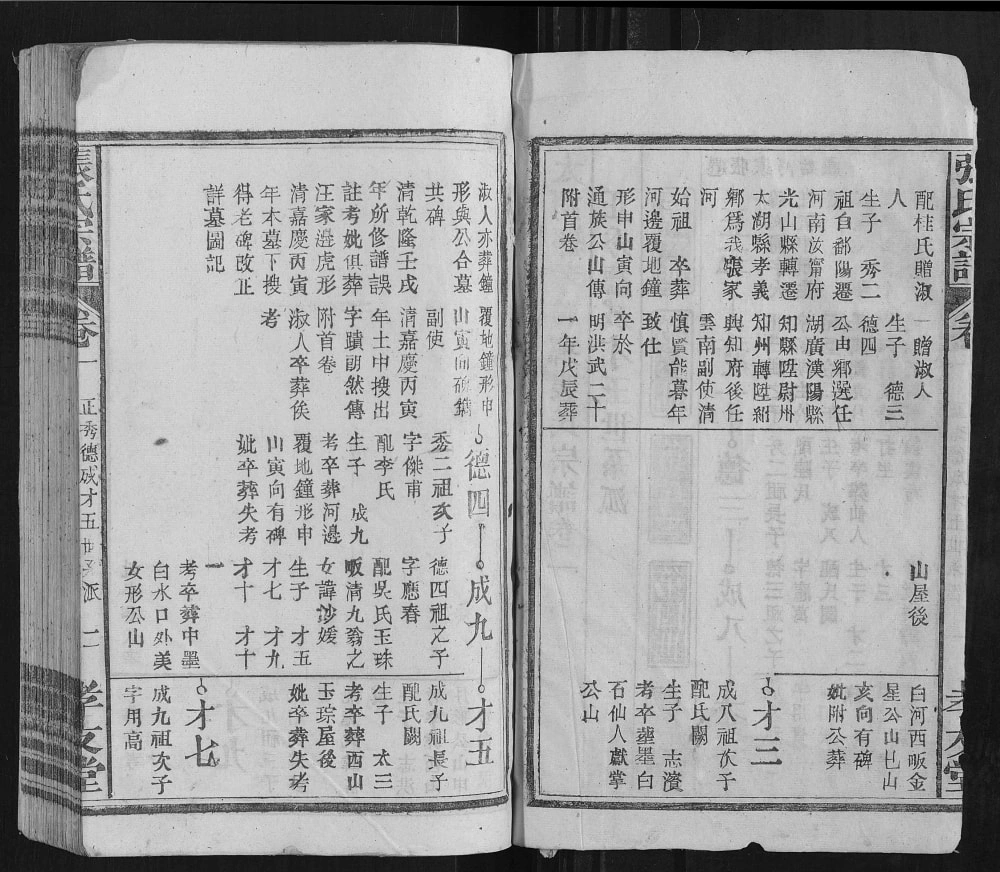 張氏宗譜
卷
孝友堂
配桂氏贈淑
人
生子 秀二
祖自鄱陽遷
河南汝甯府
光山縣轉遷
太湖縣孝義
鄉爲我張家
河
始祖 卒葬
河邊覆地鐘
形申山寅向
通族公山傳
附首卷
一贈淑人
生子 德三
德四
公由鄉選任
湖廣漢陽縣
知縣陞尉州
知州轉陞紹
興知府後任
雲南副使清
慎賢能暮年
致仕
卒於
明洪武二十
一年戊辰葬
山屋後
白河西畈金
星公山巳山
亥向有碑
妣附公葬
才三
成八祖次子
配氏闕
生子 志濱
考卒塟墨白
石仙人獻掌
公山
淑人亦葬鐘
形與公合墓
共碑
清乾隆壬戌
年所修譜誤
註考妣俱葬
汪家邉虎形
清嘉慶丙寅
年本墓下搜
得老碑改正
詳墓圖記
覆地鐘形申
山寅向碑鐫
副使
清嘉慶丙寅
年土中搜出
字蹟朗然傳
附首卷
淑人卒葬俟
考
德四
秀二祖次子
字傑甫
配李氏
生子 成九
考卒葬河邊
覆地鐘形申
山寅向有碑
妣卒葬失考
成九
德四祖之子
字應春
配吳氏玉珠
畈清九翁之
女諱沙媛
生子 才五
才七 才九
才十 才十
一
考卒葬中墨
白水口外美
女形公山
才五
成九祖長子
配氏闕
生子 太三
考卒葬西山
玉琮屋後
妣卒葬失考
才七
成九祖次子
字用高
張氏宗譜
卷一
正秀德成才五世 派
二
孝友堂